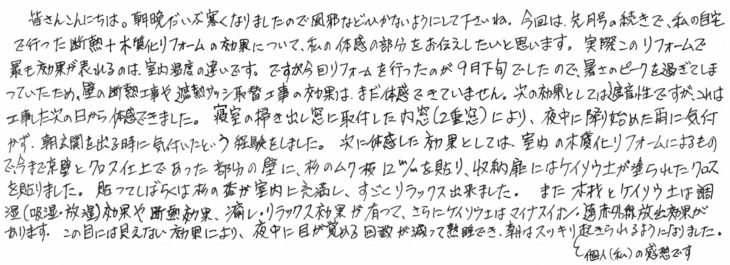 皆さんこんにちは。朝晩だいぶ寒くなりましたので風邪などひかないようにして下さいね。今回は、先月号の続きで、私の自宅
で行った断熱+木質化リフォームの効果について、私の体感の部分をお伝えしたいと思います。実際このリフォームで
最も効果が表れるのは、室内温度の違いです。ですが今回リフォームを行ったのが9月下旬でしたので、暑さのピークを過ぎてしま
っていたため、壁の断熱工事や遮熱サッシ取替工事の効果は、まだ体感できていません。次の効果としては遮音性ですが、これは
工事した次の日から体感できました。寝室の掃き出し窓に取付した内窓(2重窓)により、夜中に降り始めた雨に気付
かず、朝玄関を出る時に気付いたという経験をしました。次に体感した効果としては、室内の木質化リフォームによるもの
で、今まで京壁とクロス仕上であった部分の壁に、杉のムク板12m/mを貼り、収納扉にはケイソウ土が塗られたクロス
を貼りました。貼ってしばらくは杉の香が室内に充満し、すごくリラックス出来ました。また木材とケイソウ土は調
湿(吸湿・放湿)効果や断熱効果、癒し・リラックス効果が有って、さらにケイソウ土はマイナスイオン・遠赤外線放出効果が
あります。この目には見えない効果により、夜中に目が覚める回数が減って熟睡でき、朝はスッキリ起きられるようになりました。
と個人(私)の感想です